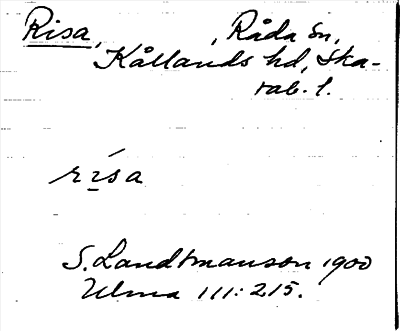 Risa, , Råda sn,
Kållands hd, Ska-
rab. l.
rísa
S. Landtmanson 1900
Ulma 111:215.